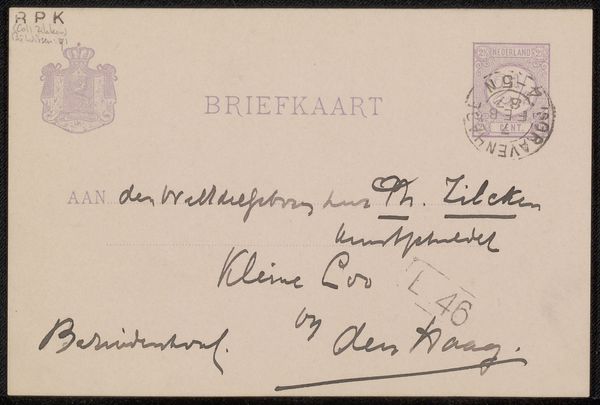 RPK
(Coll. Zilcken)
NEDERLAND
2½ CENT
'SGRAVENHAGE
7 FEB 87
4-5 N
BRIEFKAART
AAN den WelEdelgeboren heer Ph. Zilcken
Kunstschilder
Kleine Loo
L 46
Bezuidenhout. by den Haag.